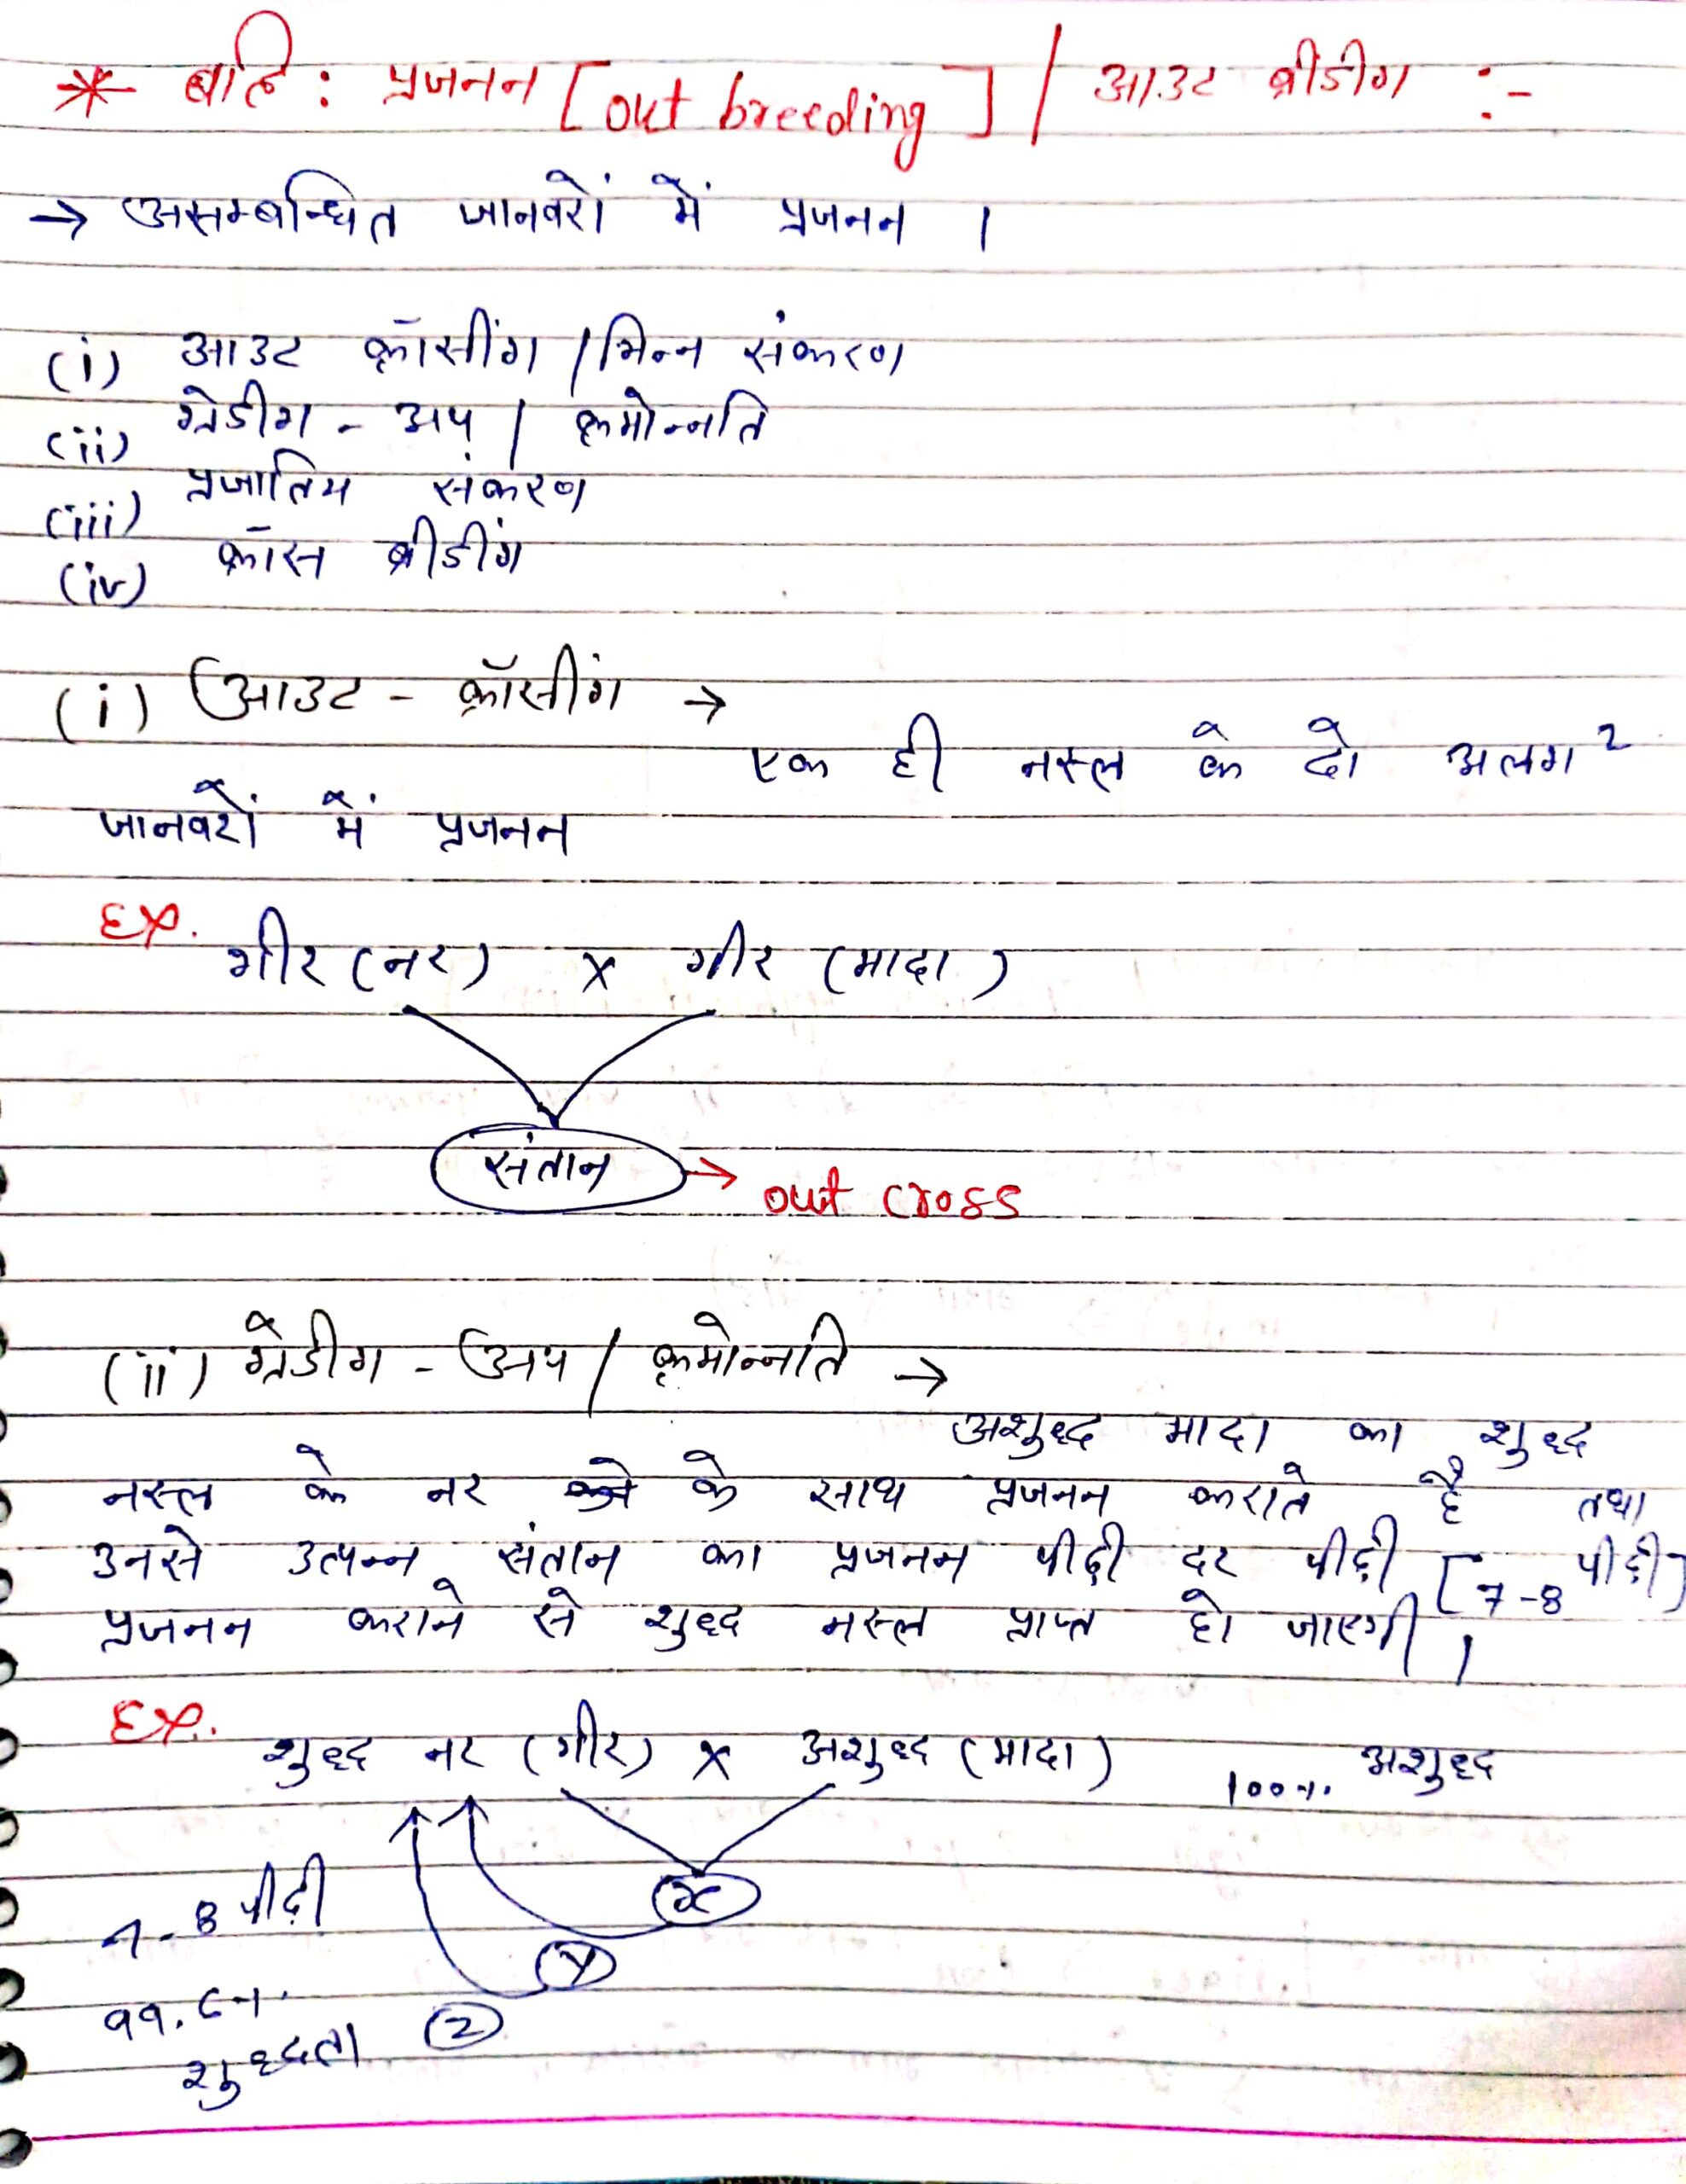 * बहि: प्रजनन [out breeding] / आउट ब्रीडींग :-
→ असम्बन्धित जानवरों में प्रजनन ।
(i) आउट क्रॉसींग / भिन्न संकरण
(ii) ग्रेडींग - अप / क्रमोन्नति
(iii) प्रजातिय संकरण
(iv) क्रॉस ब्रीडींग
(i) आउट - क्रॉसींग →
एक ही नस्ल के दो अलग²
जानवरों में प्रजनन
Ex.
गीर (नर) x गीर (मादा)
संतान → out cross
(ii) ग्रेडींग - अप / क्रमोन्नति →
अशुध्द मादा का शुध्द
नस्ल के नर के साथ प्रजनन कराते है तथा
उनसे उत्पन्न संतान का प्रजनन पीढ़ी दर पीढ़ी [7-8 पीढ़ी]
प्रजनन कराने से शुध्द नस्ल प्राप्त हो जाएगी ।
Ex.
शुध्द नर (गीर) x अशुध्द (मादा) 100%. अशुध्द
x
7-8 पीढ़ी
y
शुध्दता
z